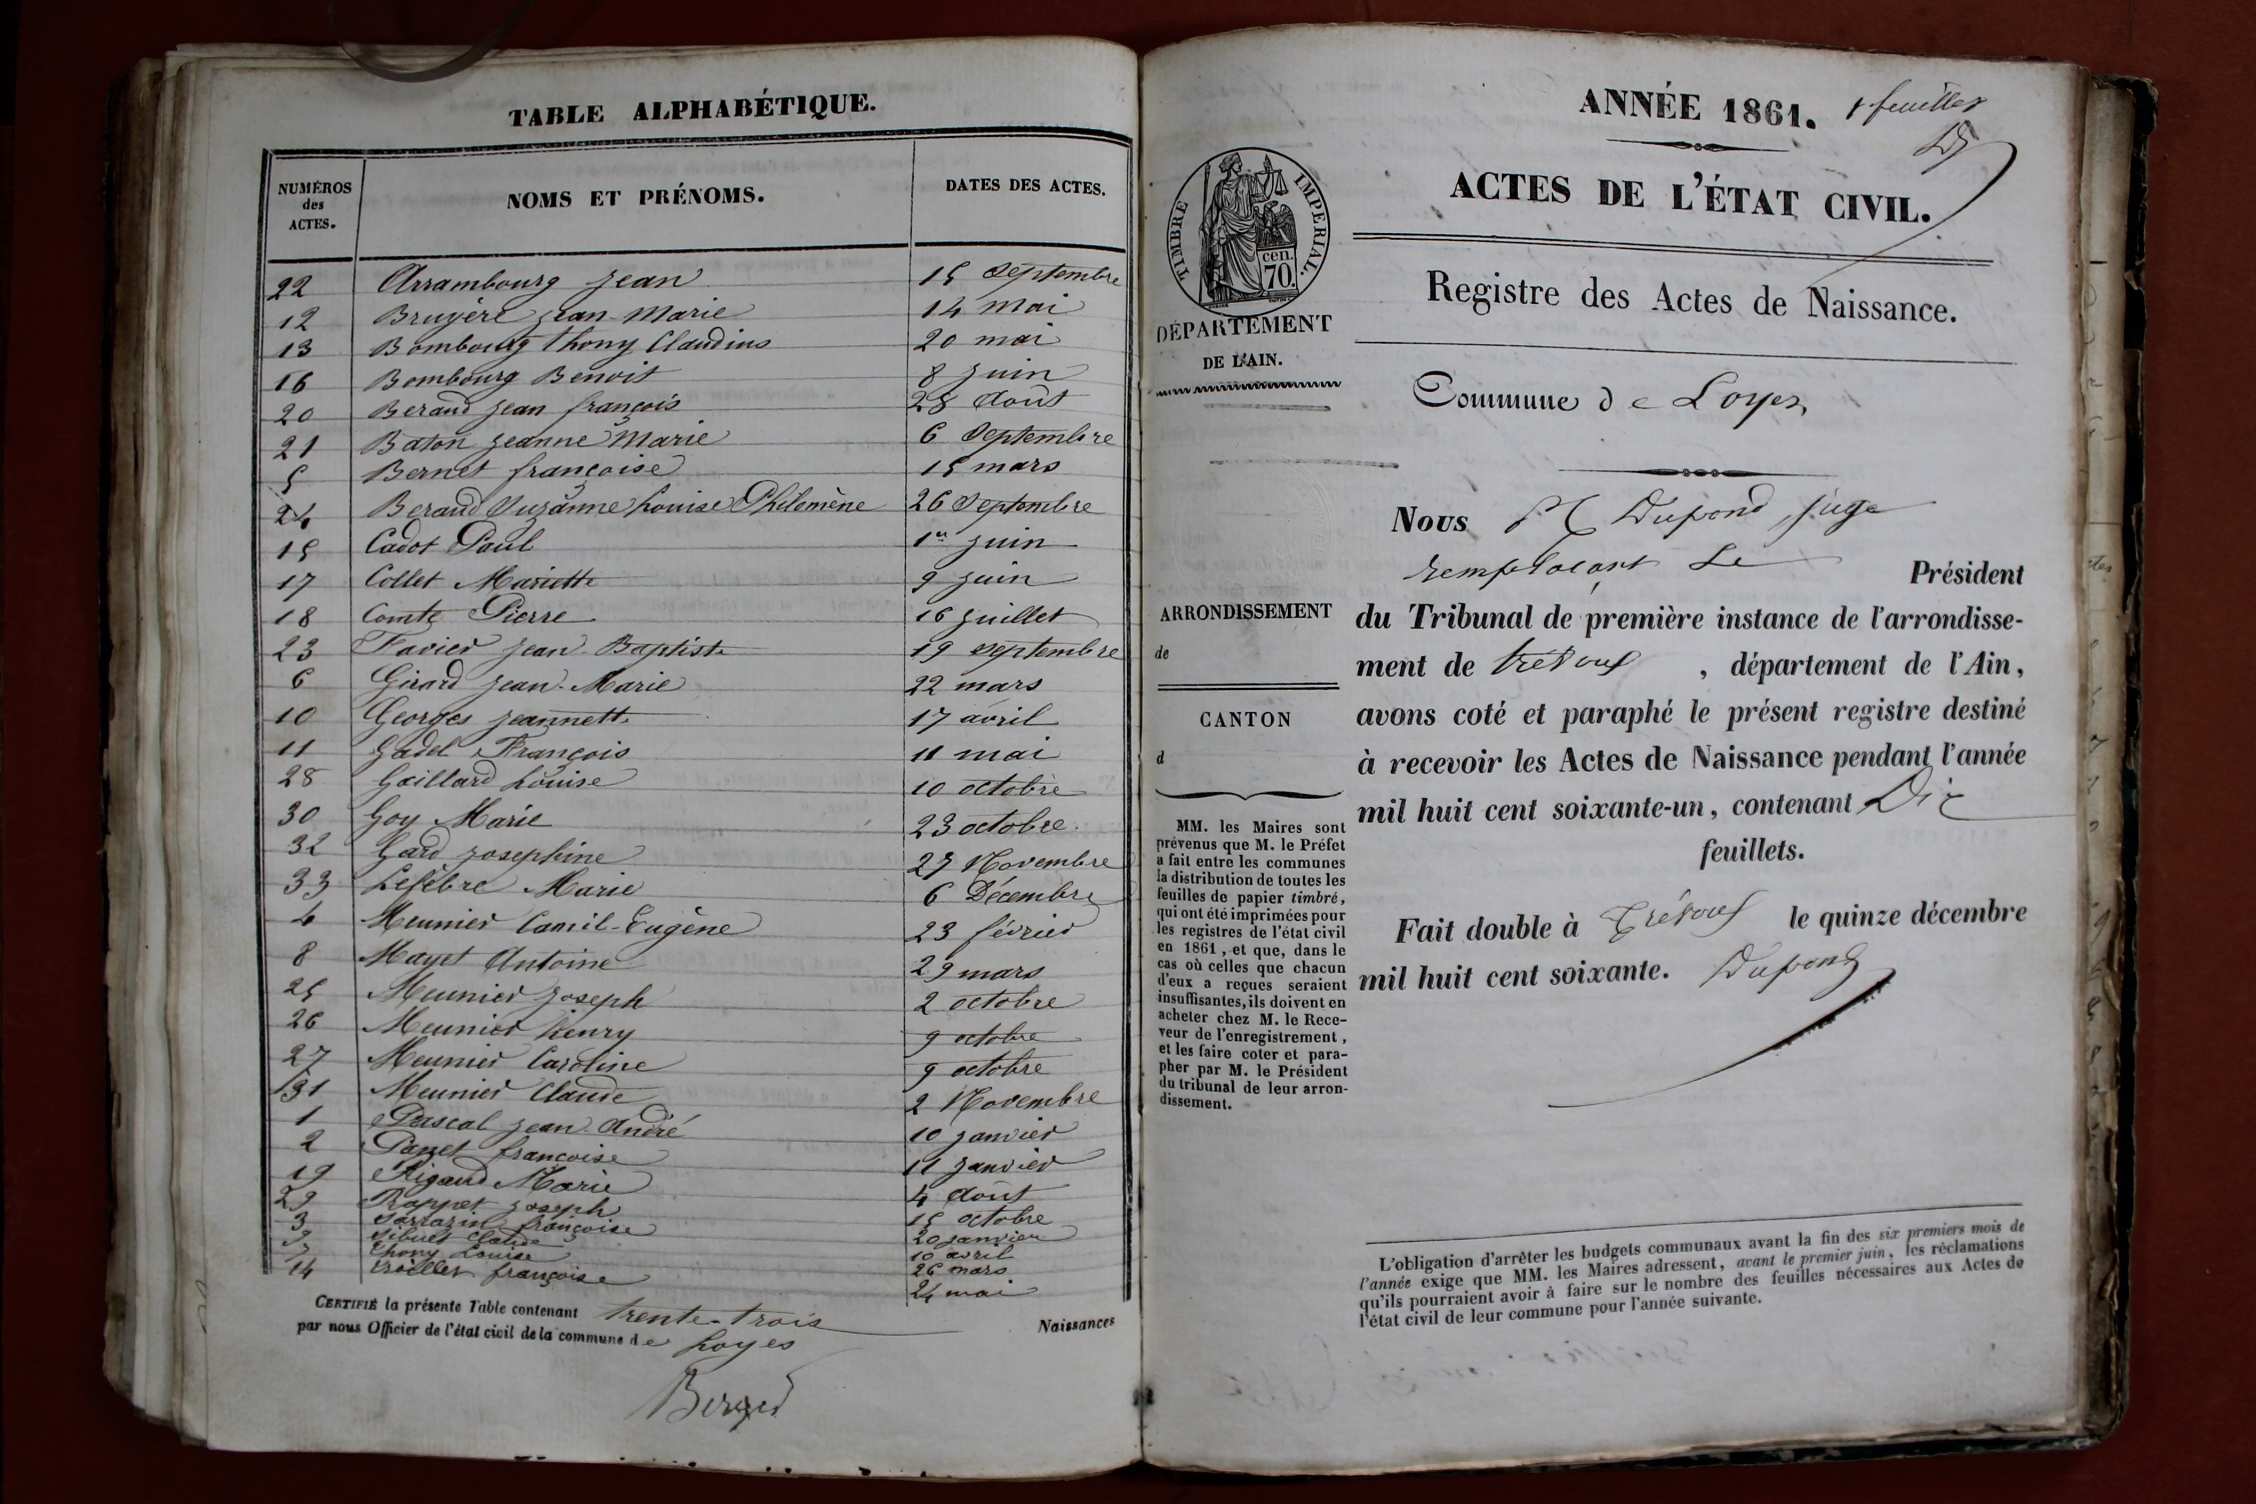 TABLE ALPHABÉTIQUE.
NUMÉROS des ACTES. NOMS ET PRÉNOMS. DATES DES ACTES.
22 Arrambourg Jean 15 Septembre
12 Bruyère Jean-Marie 14 Mai
13 Bombourg Thony Claudius 20 mai
16 Bombourg Benoit 8 Juin
20 Beraud Jean françois 28 Août
21 Baton Jeanne Marie 6 Septembre
5 Bernet françoise 15 mars
24 Beraud Suzanne Louise Philomène 26 Septembre
15 Cadot Paul 1er Juin
17 Collet Mariette 9 Juin
18 Comte Pierre 16 Juillet
23 Favier Jean-Baptiste 19 septembre
6 Girard Jean-Marie 22 mars
10 Georges Jeannette 17 avril
11 Gadel François 11 mai
28 Gaillard Louise 10 octobre
30 Goy Marie 23 octobre
32 Gard Josephine 27 Novembre
33 Lefèbre Marie 6 Décembre
4 Meunier Camil-Eugène 23 février
8 Mayet Antoine 29 mars
25 Meunier Joseph 2 octobre
26 Meunier henry 9 octobre
27 Meunier Caroline 9 octobre
31 Meunier Claude 2 Novembre
1 Pascal Jean André 10 janvier
2 Panet françoise 11 janvier
19 Rigaud Marie 4 Août
29 Rappet Joseph 15 octobre
3 Sarrazin françoise 20 janvier
9 Sibuet Claude 10 avril
7 Thony Louise 26 mars
14 françoise 24 mai
CERTIFIÉ la présente Table contenant trente-trois Naissances
par nous Officier de l'état civil de la commune de Loyes
Berger
ANNÉE 1861. feuilles
ACTES DE L'ÉTAT CIVIL.
TIMBRE IMPERIAL.
cen. 70.
DÉPARTEMENT
DE L'AIN.
Registre des Actes de Naissance.
Commune de Loyes
Nous Dupond, juge
remplaçant Le Président
du Tribunal de première instance de l'arrondisse-
ment de trévoux, département de l'Ain,
avons coté et paraphé le présent registre destiné
à recevoir les Actes de Naissance pendant l'année
mil huit cent soixante-un, contenant Dix
feuillets.
Fait double à Trévoux le quinze décembre
mil huit cent soixante. Dupond
ARRONDISSEMENT
de
CANTON
d
MM. les Maires sont
prévenus que M. le Préfet
a fait entre les communes
la distribution de toutes les
feuilles de papier timbré,
qui ont été imprimées pour
les registres de l'état civil
en 1861, et que, dans le
cas où celles que chacun
d'eux a reçues seraient
insuffisantes, ils doivent en
acheter chez M. le Rece-
veur de l'enregistrement,
et les faire coter et para-
pher par M. le Président
du tribunal de leur arron-
dissement.
L'obligation d'arrêter les budgets communaux avant la fin des six premiers mois de
l'année exige que MM. les Maires adressent, avant le premier juin, les réclamations
qu'ils pourraient avoir à faire sur le nombre des feuilles nécessaires aux Actes de
l'état civil de leur commune pour l'année suivante.